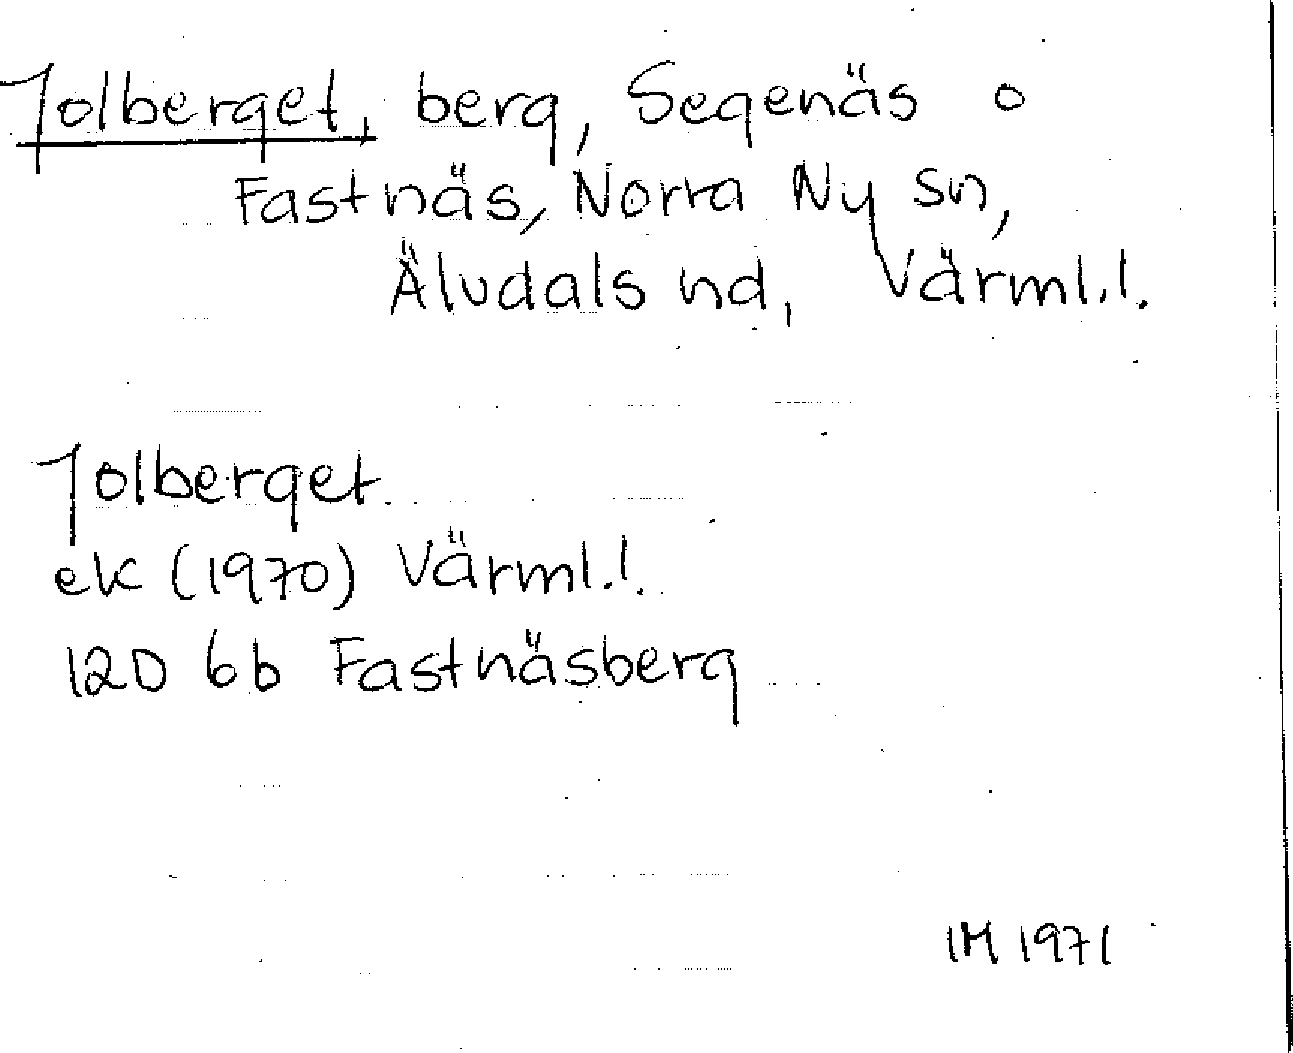 Jolberget, berg, Segenäs o
Fastnäs, Norra Ny sn,
Älvdals hd, Värml.l.
Jolberget
ek (1970) Värml.l.
12D 6b Fastnäsberg
IM 1971